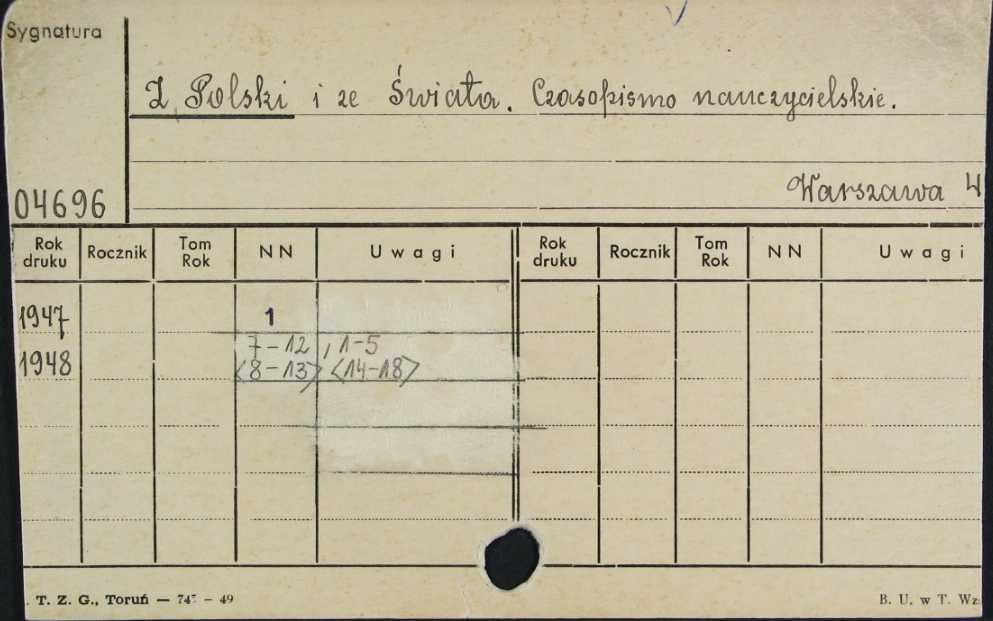 Sygnatura
Z Polski i ze Świata. Czasopismo nauczycielskie.
04696
Warszawa 4
Rok druku Rocznik Tom Rok NN Uwagi Rok druku Rocznik Tom Rok NN Uwagi
1947 1
1948 7-12, 1-5
<8-13> <14-18>
. T. Z. G., Toruń — 74 – 49 B. U. w T. Wz